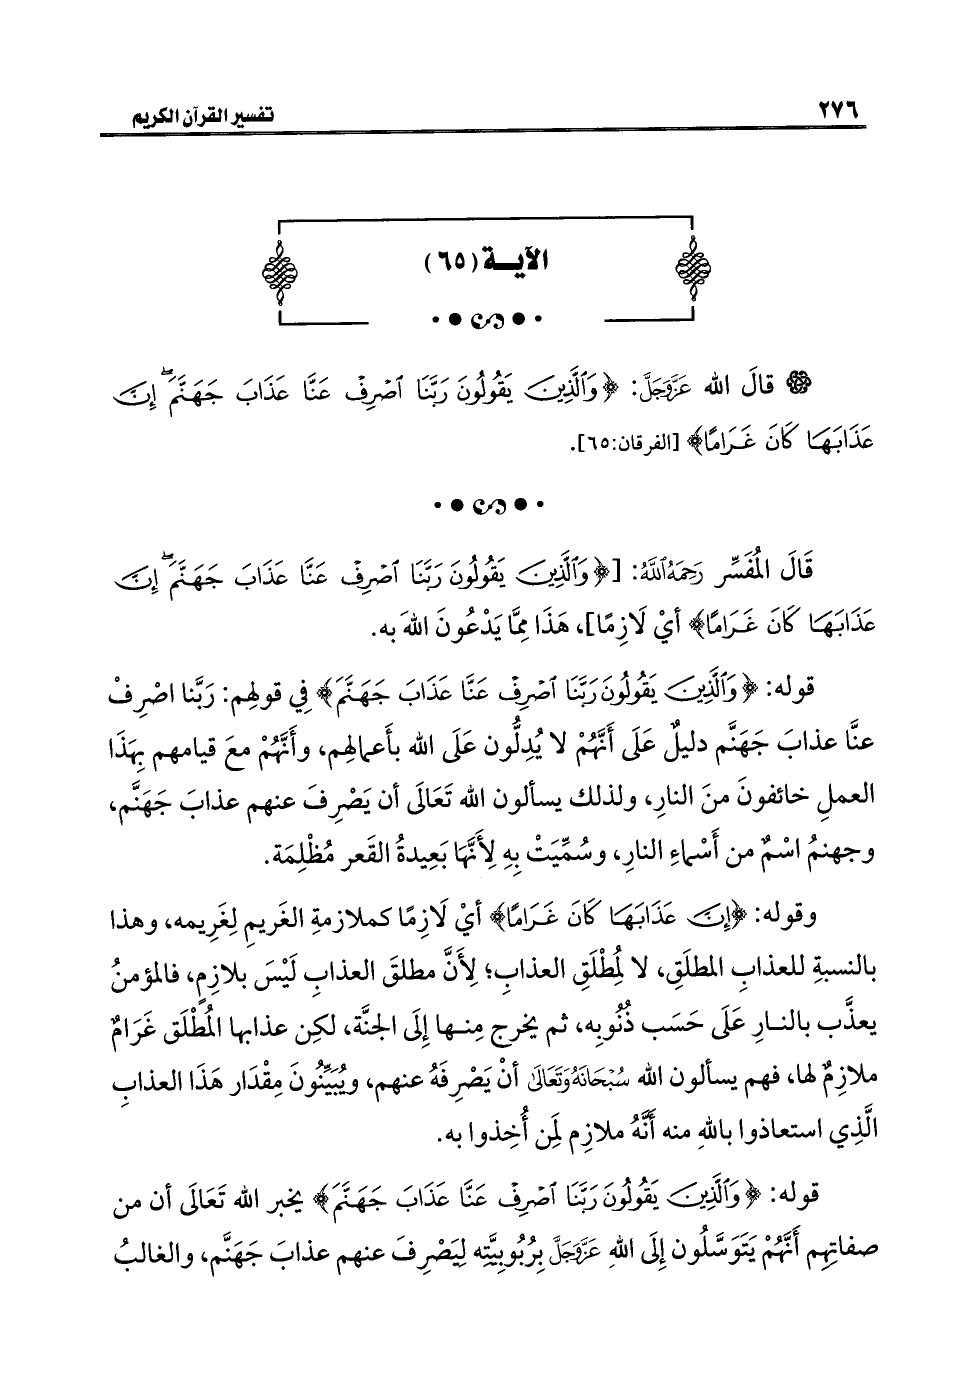 ٢٧٦
تفسير القرآن الكريم
الآيــة (٦٥)
قالَ الله عَزَّوَجَلَّ: ﴿وَٱلَّذِينَ يَقُولُونَ رَبَّنَا ٱصْرِفْ عَنَّا عَذَابَ جَهَنَّمَ ۖ إِنَّ
عَذَابَهَا كَانَ غَرَامًا﴾ [الفرقان:٦٥].
قَالَ المُفَسِّر رَحِمَهُ ٱللَّهُ: [﴿وَٱلَّذِينَ يَقُولُونَ رَبَّنَا ٱصْرِفْ عَنَّا عَذَابَ جَهَنَّمَ ۖ إِنَّ
عَذَابَهَا كَانَ غَرَامًا﴾ أيْ لَازِمًا]، هَذَا مِمَّا يَدْعُونَ اللهَ به.
قوله: ﴿وَٱلَّذِينَ يَقُولُونَ رَبَّنَا ٱصْرِفْ عَنَّا عَذَابَ جَهَنَّمَ﴾ فِي قولهِم: رَبَّنا اصْرِفْ
عنَّا عذابَ جَهَنَّم دليلٌ عَلَى أَنَّهُمْ لا يُدِلُّون عَلَى الله بأعمالِهِم، وأَنَّهُمْ معَ قيامهم بِهَذَا
العملِ خائفونَ منَ النارِ، ولذلك يسألون الله تَعَالَى أن يَصْرِفَ عنهم عذابَ جَهَنَّم،
وجهنمُ اسْمٌ من أَسْماءِ النارِ، وسُمِّيَتْ بِهِ لِأَنَّهَا بَعِيدةُ القَعر مُظْلِمَة.
وقوله: ﴿إِنَّ عَذَابَهَا كَانَ غَرَامًا﴾ أيْ لَازِمًا كملازمةِ الغَريمِ لِغَرِيمه، وهذا
بالنسبةِ للعذابِ المطلَقِ، لا لمُطْلَقِ العذابِ؛ لِأَنَّ مطلقَ العذابِ لَيْسَ بلازمٍ، فالمؤمنُ
يعذَّب بالنــارِ عَلَى حَسَب ذُنُوبِه، ثم يخرج مِنــها إلَى الجنَّة، لكِن عذابها المُطْلَق غَرَامٌ
ملازمٌ لها، فهم يسألون الله سُبْحَانَهُ وَتَعَالَى أنْ يَصْرِفَهُ عنهم، ويُبَيِّنُونَ مِقْدَار هَذَا العذابِ
الَّذِي استعاذوا باللهِ منه أَنَّهُ ملازم لِمَن أُخِذوا به.
قوله: ﴿وَٱلَّذِينَ يَقُولُونَ رَبَّنَا ٱصْرِفْ عَنَّا عَذَابَ جَهَنَّمَ﴾ يخبر الله تَعَالَى أن من
صفاتِهِم أَنَّهُمْ يَتَوَسَّلُون إلَى اللهِ عَزَّوَجَلَّ بِرُبُوبِيَّتِه لِيَصْرِفَ عنهم عذابَ جَهَنَّم، والغالبُ